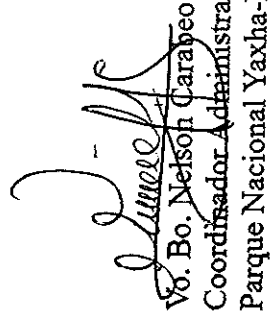 Vo. Bo. Nelson Carabeo
Coordinador Administra
Parque Nacional Yaxha-